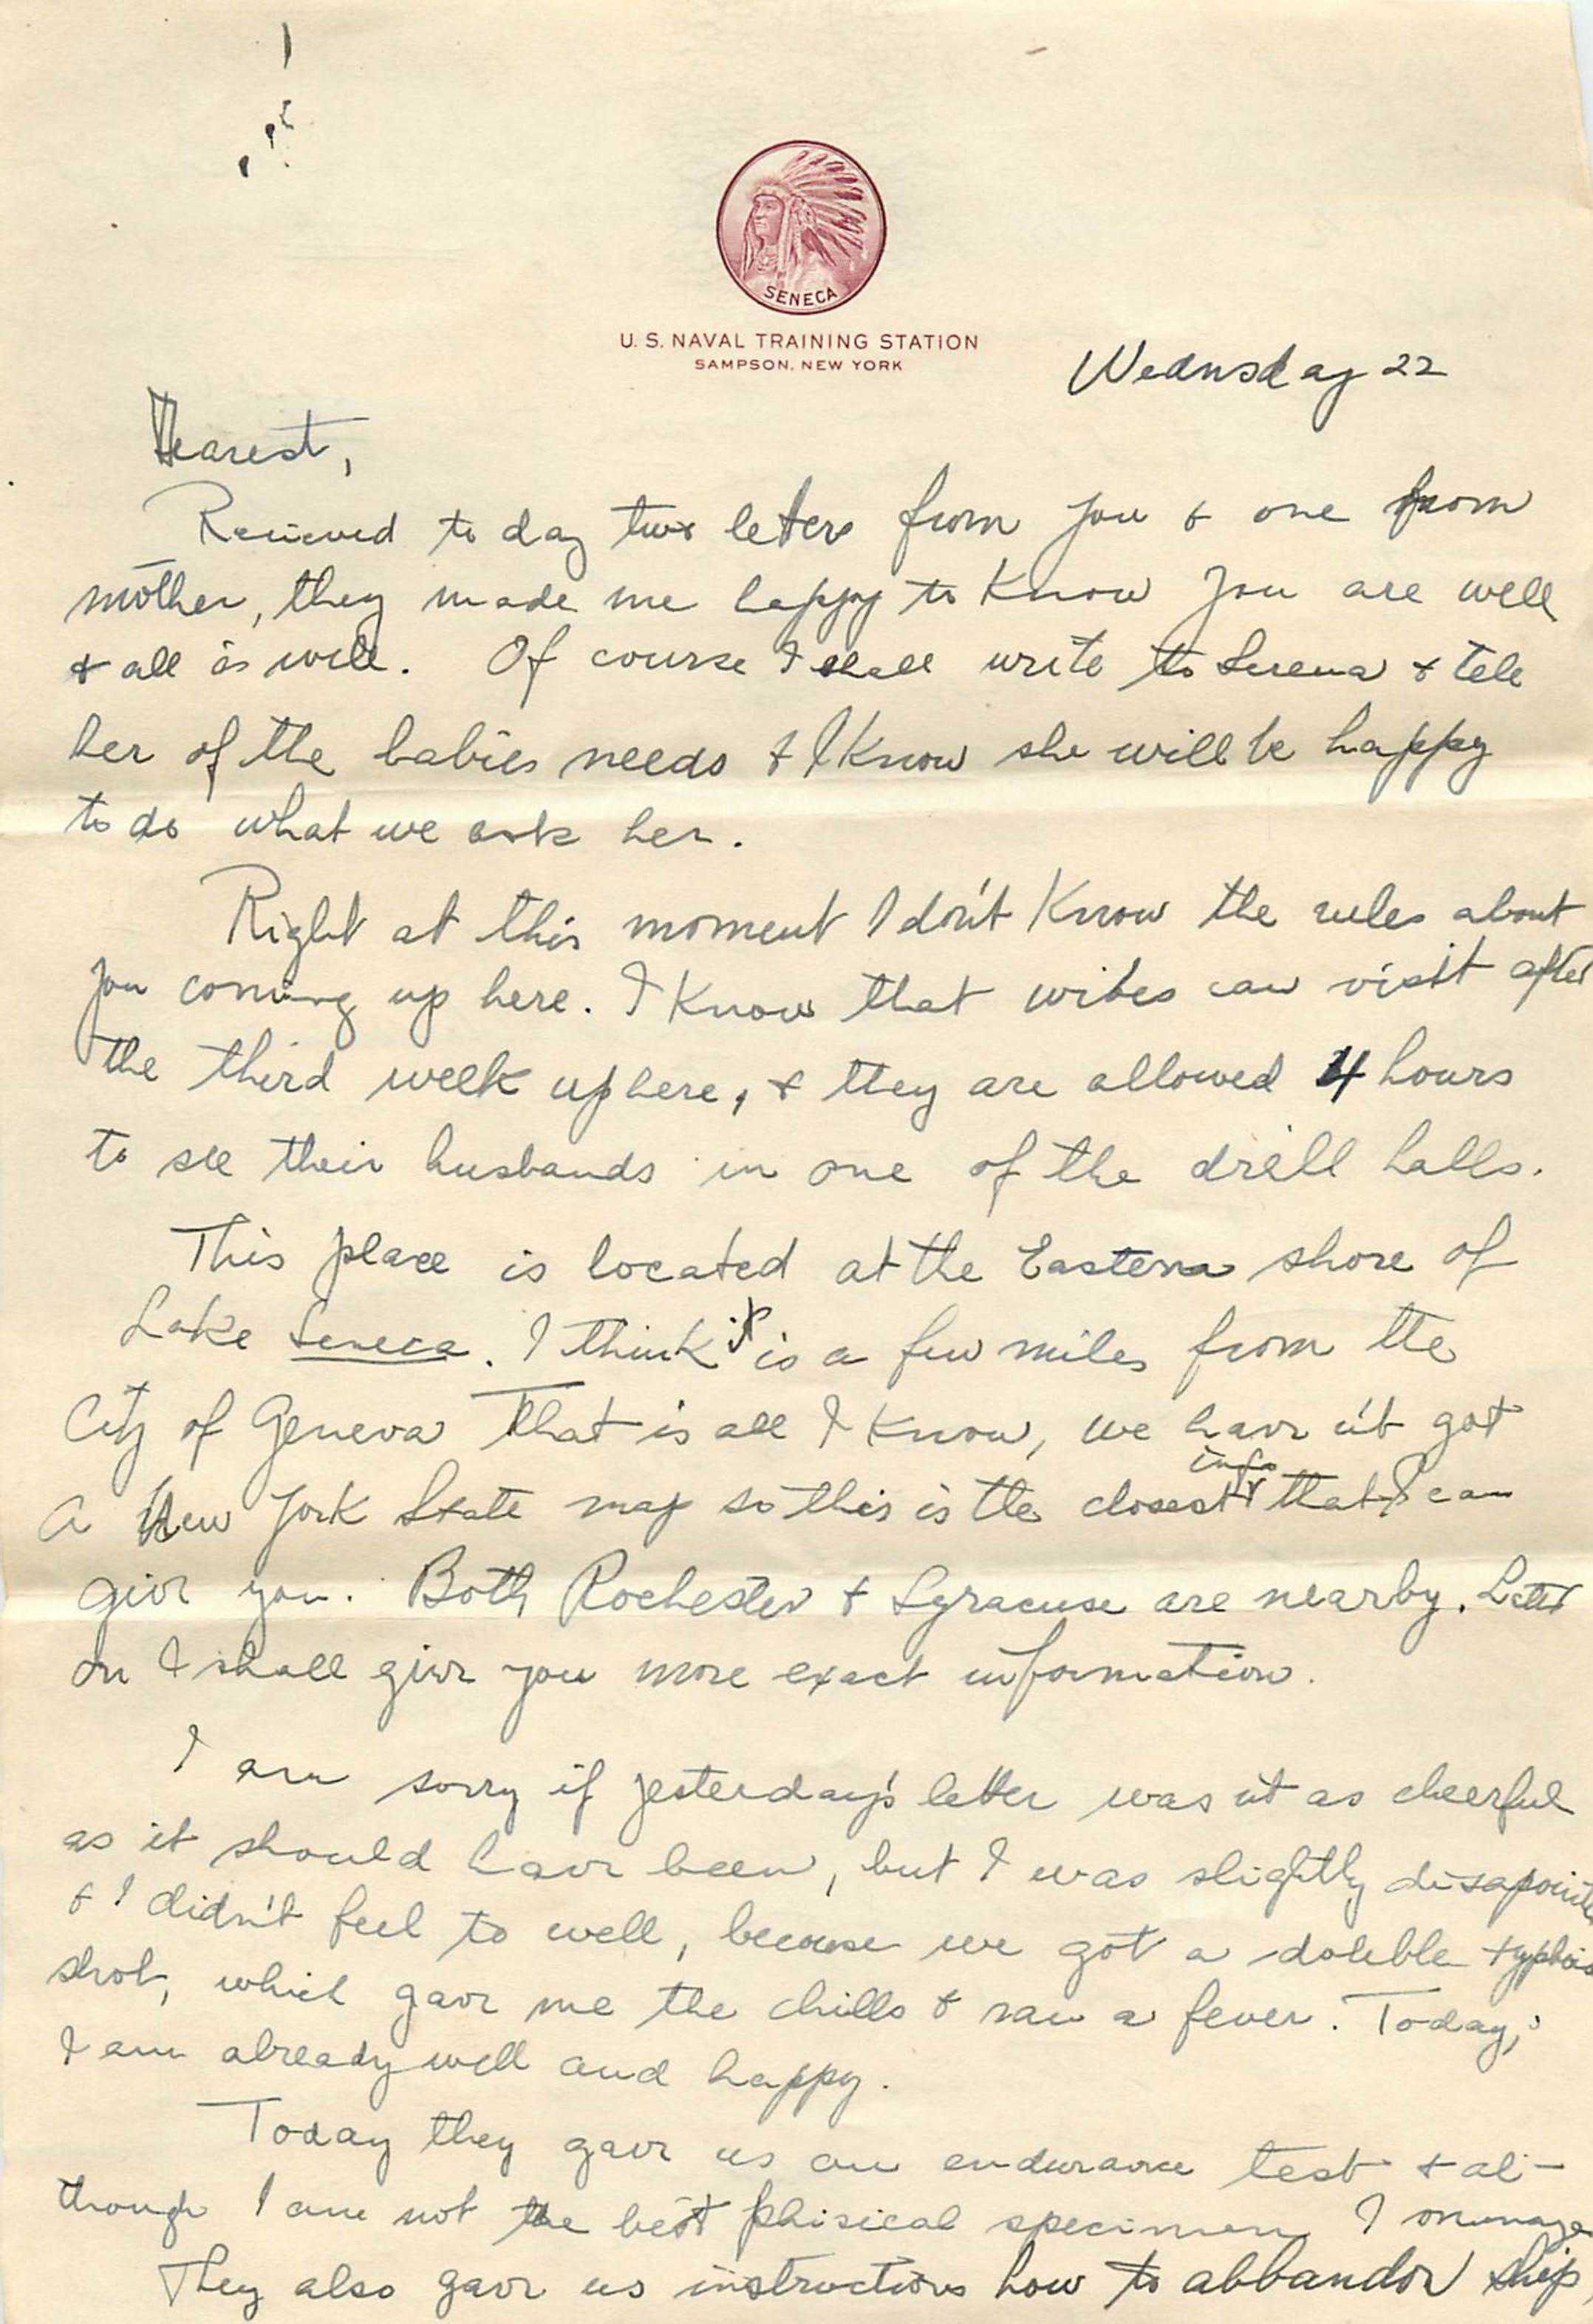 SENECA
U. S. NAVAL TRAINING STATION
SAMPSON, NEW YORK
Wednsday 22
Dearest,
Recieved to day two leters from you & one from
mother, they made me happy to know you are well
& all is well. Of course I shall write to Serena & tell
her of the babies needs & I know she will be happy
to do what we ask her.
Right at this moment I don't know the rules about
you coming up here. I know that wives can visit after
the third week up here, & they are allowed 4 hours
to see their husbands in one of the drill halls.
This place is located at the Eastern shore of
Lake Seneca. I think it is a few miles from the
City of Geneva That is all I know, we have n't got
a New York State map so this is the closest info that I can
give you. Both Rochester & Syracuse are nearby. Later
on I shall give you more exact information.
I am sorry if yesterday's letter was n't as cheerful
as it should have been, but I was slightly disapointed
& I didn't feel to well, because we got a double typhoid
shot, which gave me the chills & ran a fever. Today,
I am already well and happy.
Today they gave us an endurance test & al-
though I am not the best phisical specimen, I
They also gave us instructions how to abbandon ship,